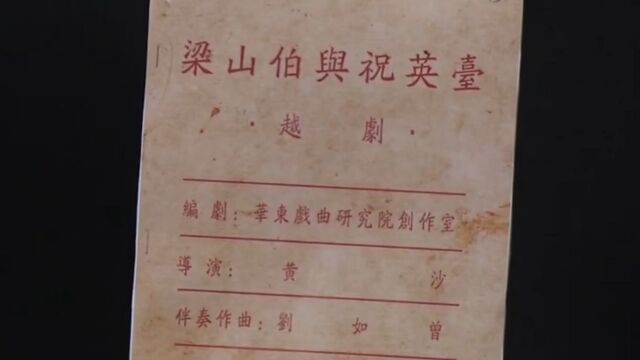 梁山伯與祝英臺
·越劇·
編劇：華東戲曲研究院創作室
導演：黄沙
伴奏作曲：劉如曾